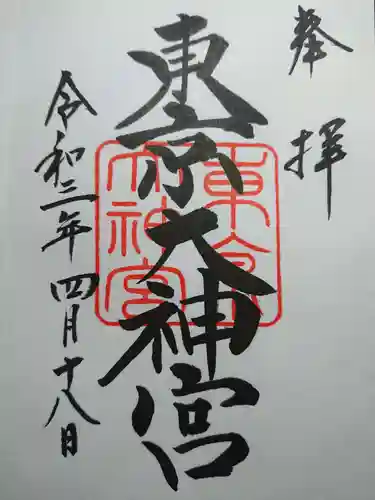 奉拝
東京大神宮
東京大神宮
令和三年四月十八日